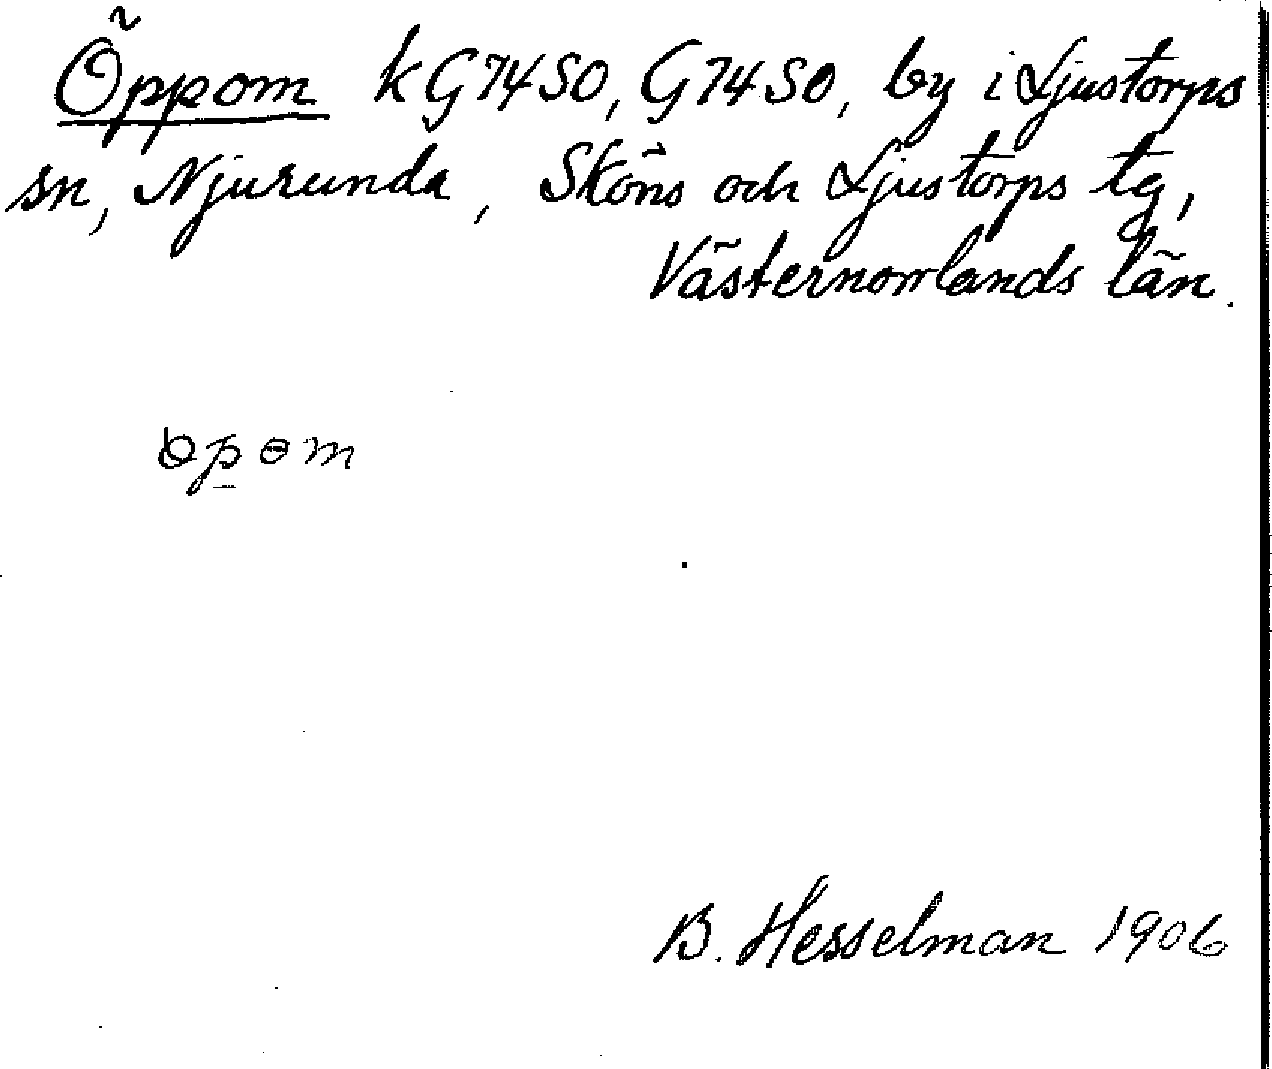 Öppom kG74SO, G74SO, by i Ljustorps
sn, Njurunda, Sköns och Ljustorps tg,
Västernorrlands län.
B. Hesselman 1906